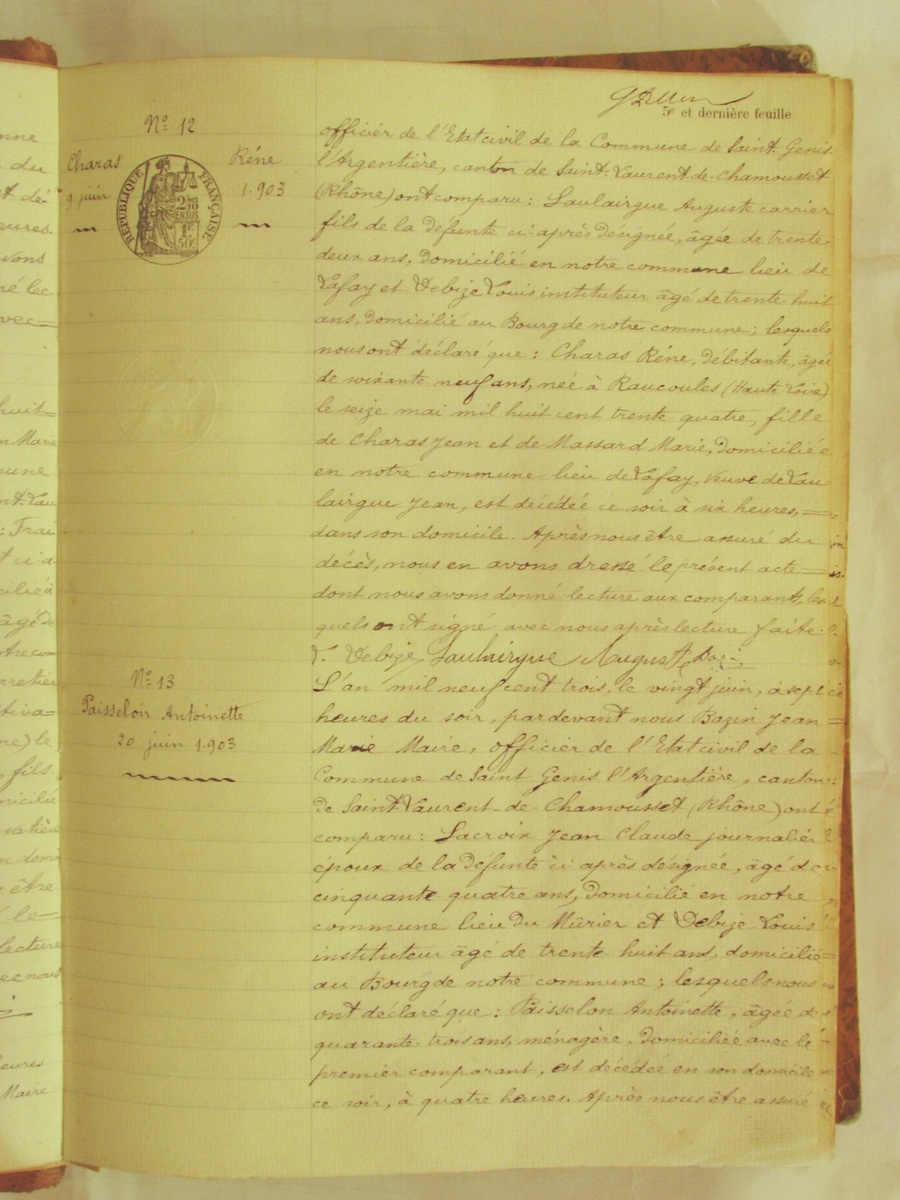 5e et dernière feuille
No 12
Charas Réne
9 juin 1.903
RÉPUBLIQUE FRANÇAISE
officier de l'Etat civil de la Commune de Saint Genis
l'Argentière, canton de Saint-Laurent-de-Chamousset
(Rhône) ont comparu : Laulairgue Auguste carrier
fils de la défunte ci-après désignée, âgée de trente-
deux ans, domicilié en notre commune lieu de
Lafay et Debize Louis instituteur âgé de trente huit
ans, domicilié au Bourg de notre commune ; lesquels
nous ont déclaré que : Charas Réne, débitante, âgée
de soixante neuf ans, née à Raucoules (Haute Loire)
le seize mai mil huit cent trente quatre, fille
de Charas Jean et de Massard Marie, domiciliée
en notre commune lieu de Lafay, Veuve de Lau-
lairgue Jean, est décédée ce soir à six heures,
dans son domicile. Après nous être assuré du
décès, nous en avons dressé le présent acte
dont nous avons donné lecture aux comparants, les
quels ont signé avec nous après lecture faite.
L. Debize Laulairgue August
No 13
Paisselon Antoinette
20 juin 1.903
L'an mil neuf cent trois, le vingt juin, à sept
heures du soir, par devant nous Bazin Jean
Marie Maire, officier de l'Etat civil de la
Commune de Saint Genis l'Argentière, canton
de Saint-Laurent-de-Chamousset (Rhône) ont
comparu : Lacroix Jean Claude journalier
époux de la défunte ci après désignée, âgé de
cinquante quatre ans, domicilié en notre
commune lieu du Mûrier et Debize Louis
instituteur âgé de trente huit ans, domicilié
au Bourg de notre commune ; lesquels nous
ont déclaré que : Paisselon Antoinette, âgée de
quarante trois ans, ménagère, domiciliée avec le
premier comparant, est décédée en son domicile
ce soir, à quatre heures. Après nous être assuré